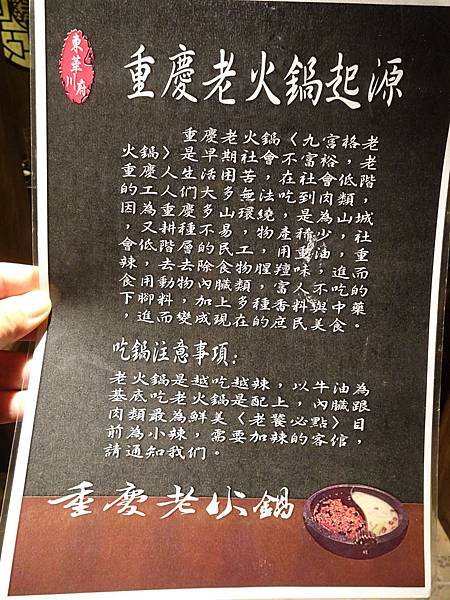 東華川府
重慶老火鍋起源
重慶老火鍋〈九宮格老
火鍋〉是早期社會不富裕，老
重慶人生活困苦，在社會低階
的工人們大多無法吃到肉類，
因為重慶多山環繞，是為山城
，又耕種不易，物產稀少，社
會低階層的民工，用重油，重
辣，去去除食物腥羶味，進而
食用動物內臟類，富人不吃的
下腳料，加上多種香料與中藥
，進而變成現在的庶民美食。
吃鍋注意事項：
老火鍋是越吃越辣，以牛油為
基底吃老火鍋是配上，內臟跟
肉類最為鮮美〈老饕必點〉目
前為小辣，需要加辣的客倌，
請通知我們。
重慶老火鍋